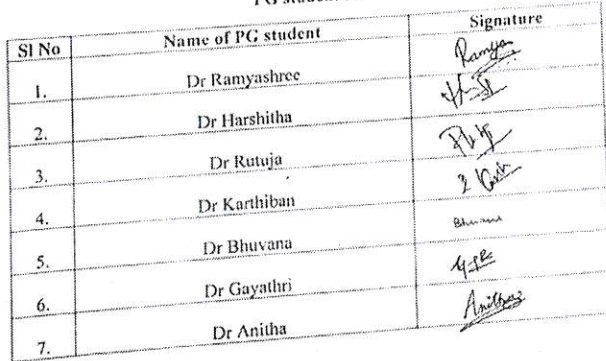 PG student
Sl No Name of PG student Signature
1. Dr Ramyashree Ramya
2. Dr Harshitha
3. Dr Rutuja
4. Dr Karthiban
5. Dr Bhuvana Bhuvana
6. Dr Gayathri
7. Dr Anitha Anitha